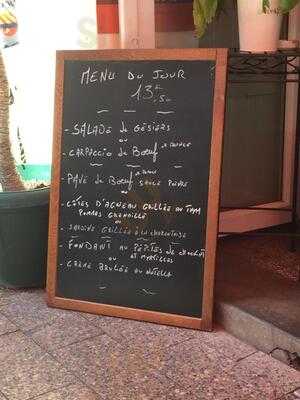 MENU DU JOUR
13€,50
- SALADE de GÉSIERS
ou
- CARPACCIO de Bœuf
- PAVÉ de Bœuf SAUCE POIVRE
ou
- CÔTES D'AGNEAU GRILLÉE AU THYM
POMMES GRENAILLE
ou
- SARDINE GRILLÉE À LA CHARENTAISE
- FONDANT AU PÉPITES DE CHOCOLAT
ou ET MYRTILLES
- CRÈME BRULÉE AU NUTELLA